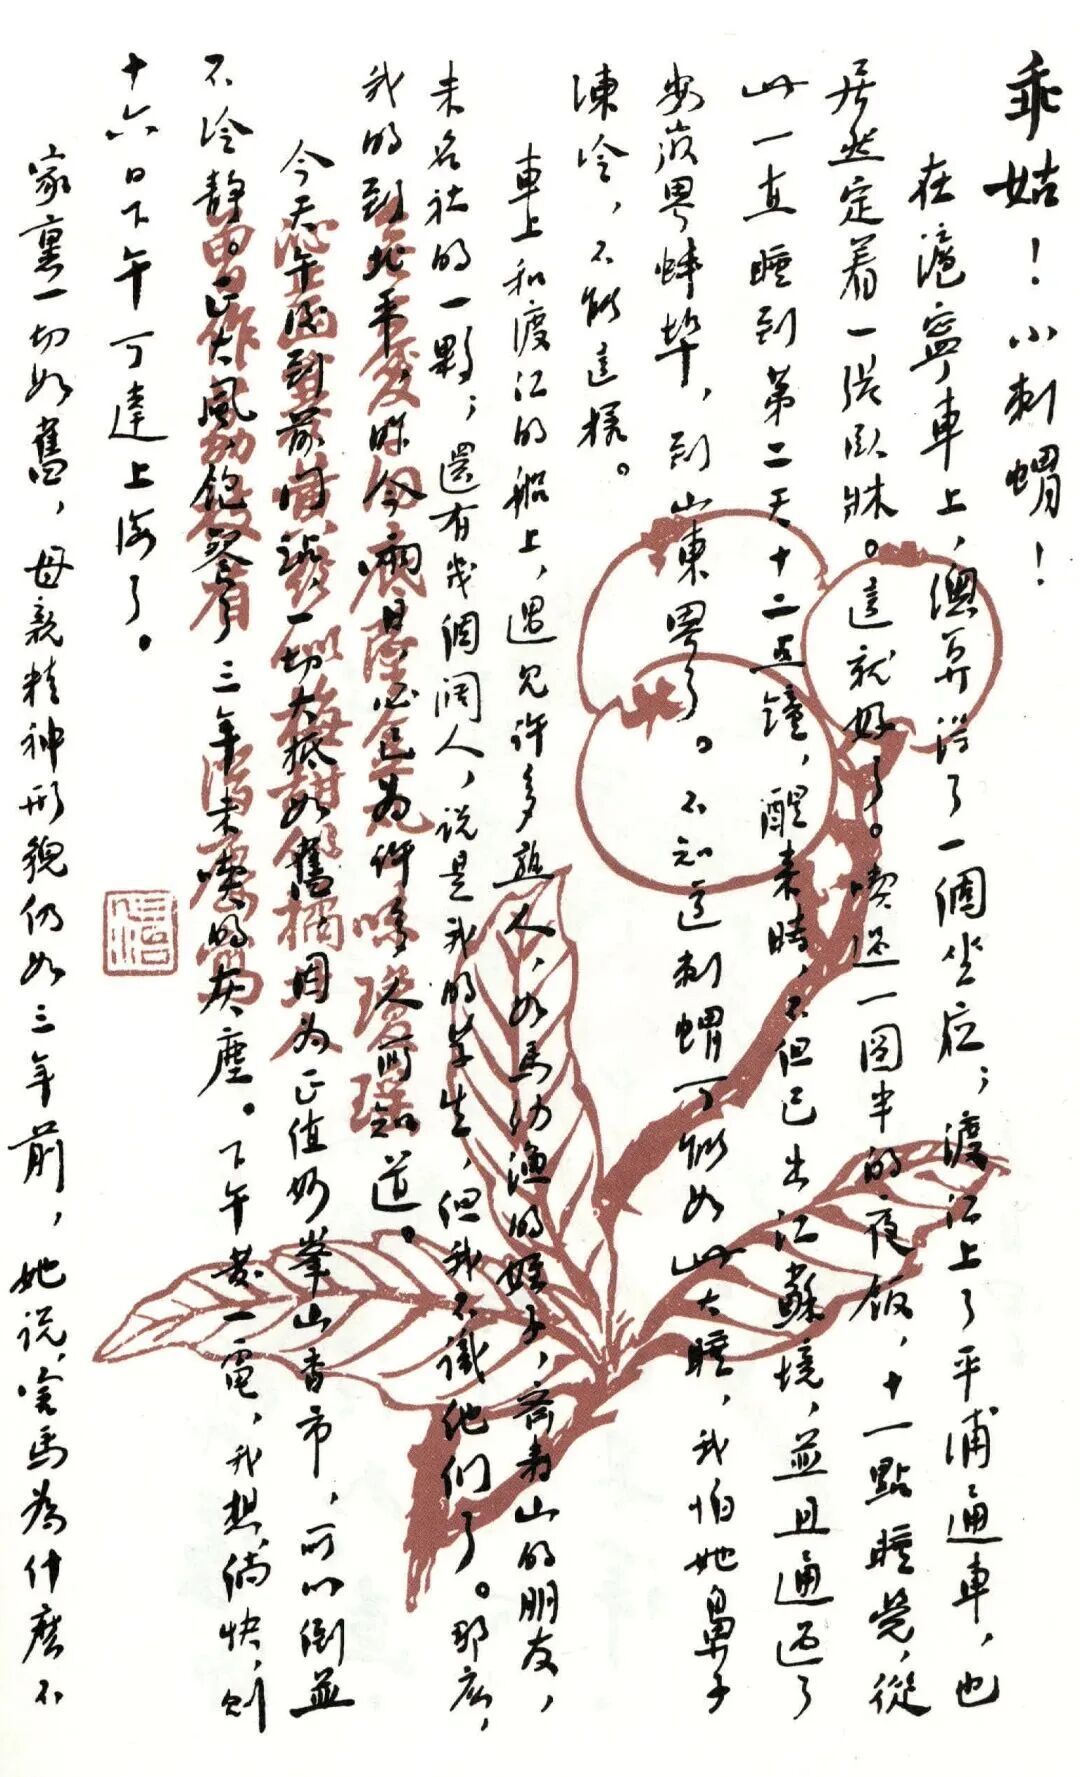 乖姑！小刺蝟！
在滬寧車上，總算得了一個坐位；渡江上了平浦通車，也
居然定着一張臥牀。這就好了。喫過一圓半的夜飯，十一點睡覺，從
此一直睡到第二天十二點鐘，醒來時，不但已出江蘇境，並且通過了
安徽界蚌埠，到山東界了。不知道刺蝟可能如此大睡，我怕她鼻子
凍冷，不能這樣。
車上和渡江的船上，遇見許多熟人，如馬幼漁的姪子，齊壽山的朋友，
未名社的一夥；還有幾個闊人，說是我的學生，但我不識他們了。那麼，
我的到北平，昨今兩日，必已為許多人所知道。
今天午後到前門站，一切大抵如舊，因為正值妙峯山香市，所以倒並
不冷靜。正大風，飽餐了三年未喫的灰塵。下午發一電，我想，倘快，則
十六日下午可達上海了。
家裏一切如舊，母親精神形貌仍如三年前，她說，害馬為什麼不